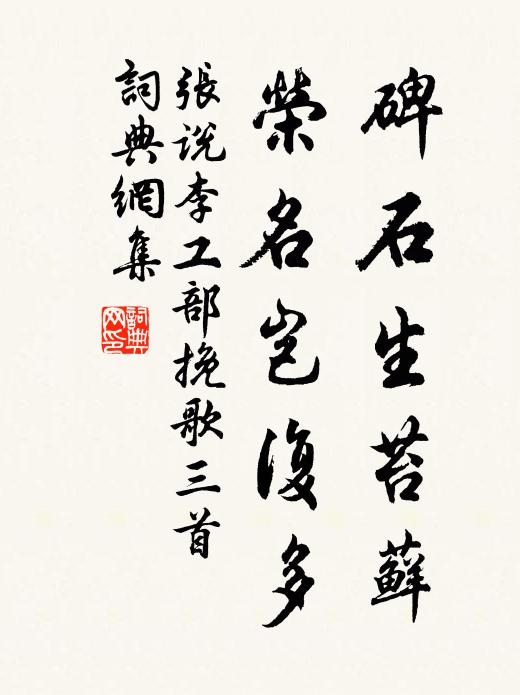 碑石生苔蘚
榮名岂復多
張说李工部挽歌三首
詞典網集
詞典网印